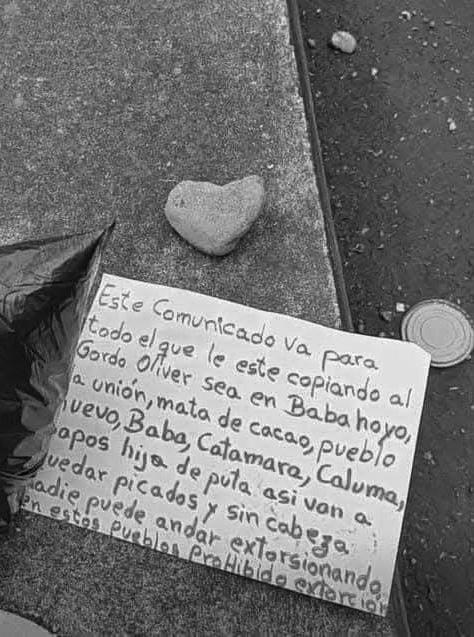 Este Comunicado va para
todo el que le este copiando al
Gordo Oliver sea en Babahoyo,
a unión, mata de cacao, pueblo
uevo, Baba, Catamara, Caluma,
apos hija de puta asi van a
uedar picados y sin cabeza
nadie puede andar extorsionando
en estos pueblos proHibido extorcion